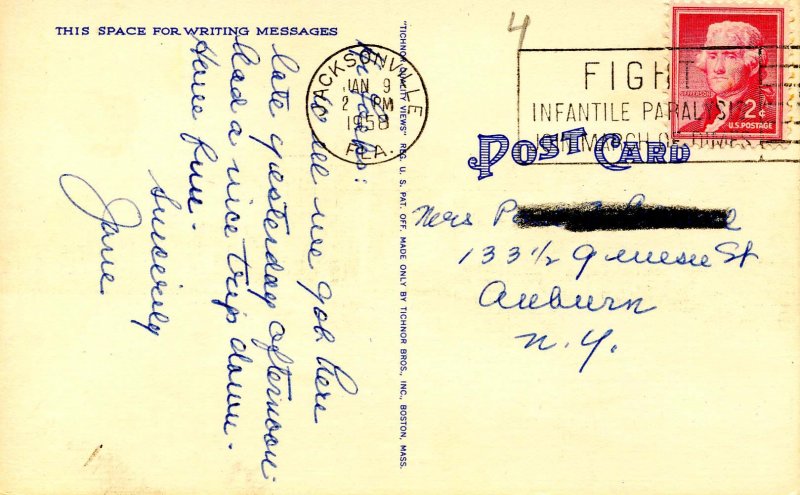 THIS SPACE FOR WRITING MESSAGES
Hi Folks:
We got here
late yesterday afternoon.
Had a nice trip down.
Have fun.
Sincerely
Jane
"TICHNOR QUALITY VIEWS" REG. U. S. PAT. OFF. MADE ONLY BY TICHNOR BROS., INC., BOSTON, MASS.
JACKSONVILLE
JAN 9
2 PM
1958
FLA.
4
FIGHT
INFANTILE PARALYSIS
JOIN MARCH OF DIMES
JEFFERSON
2¢
U.S. POSTAGE
POST CARD
Mrs
133 1/2 Genesee St
Auburn
N.Y.